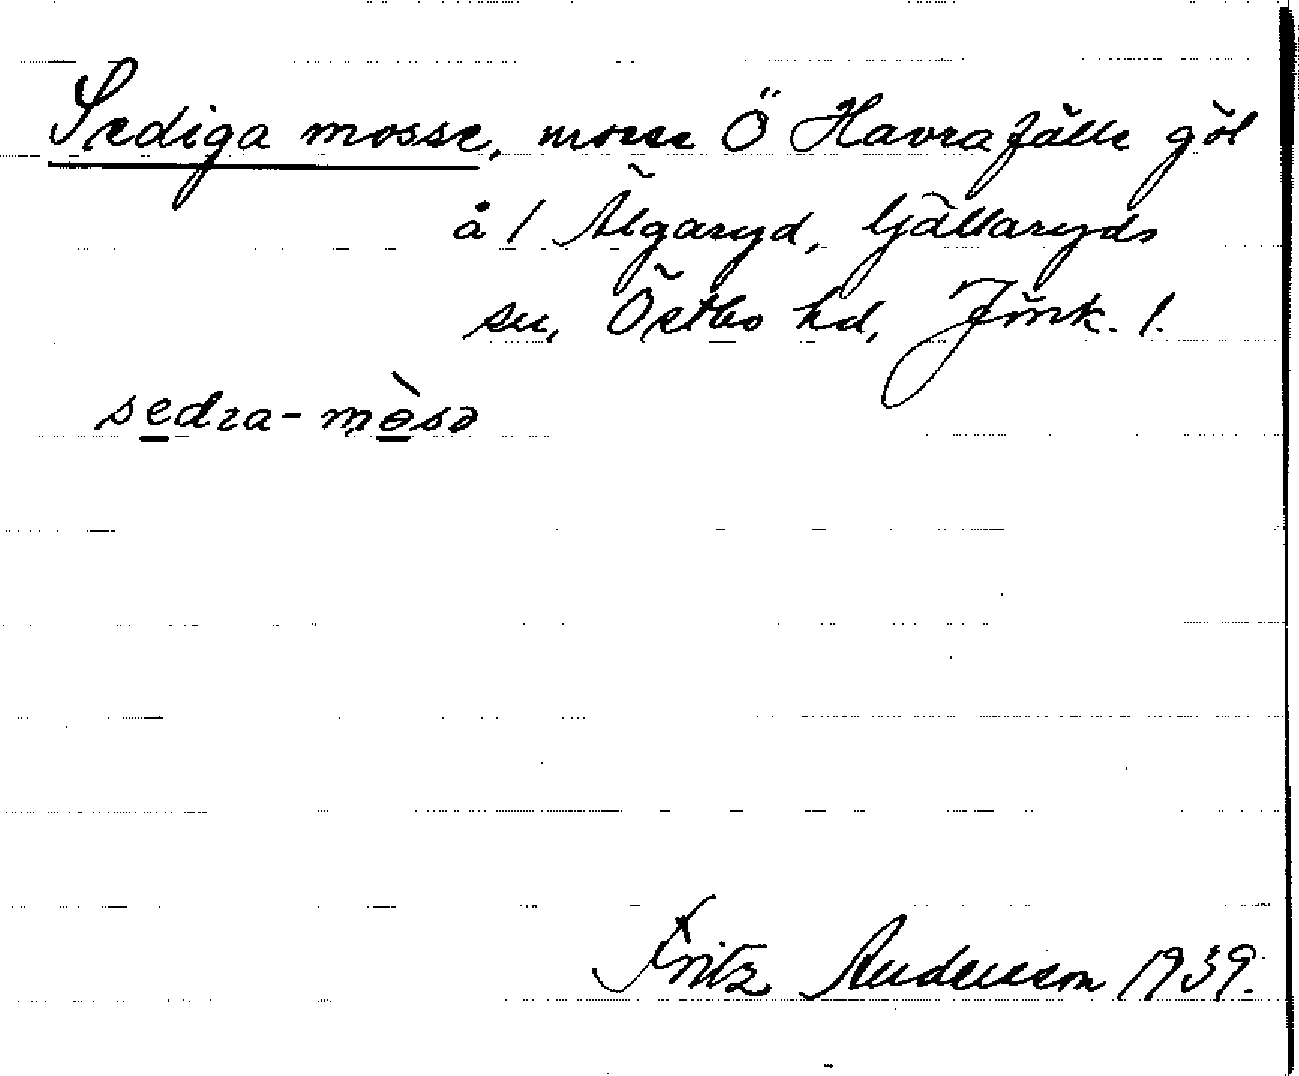 Sediga mosse, mosse Ö Havrafälle göl
å 1 Älgaryd, Gällaryds
sn, Östbo hd, Jönk. l.
sedra-mòsə
Fritz Andersson 1939.